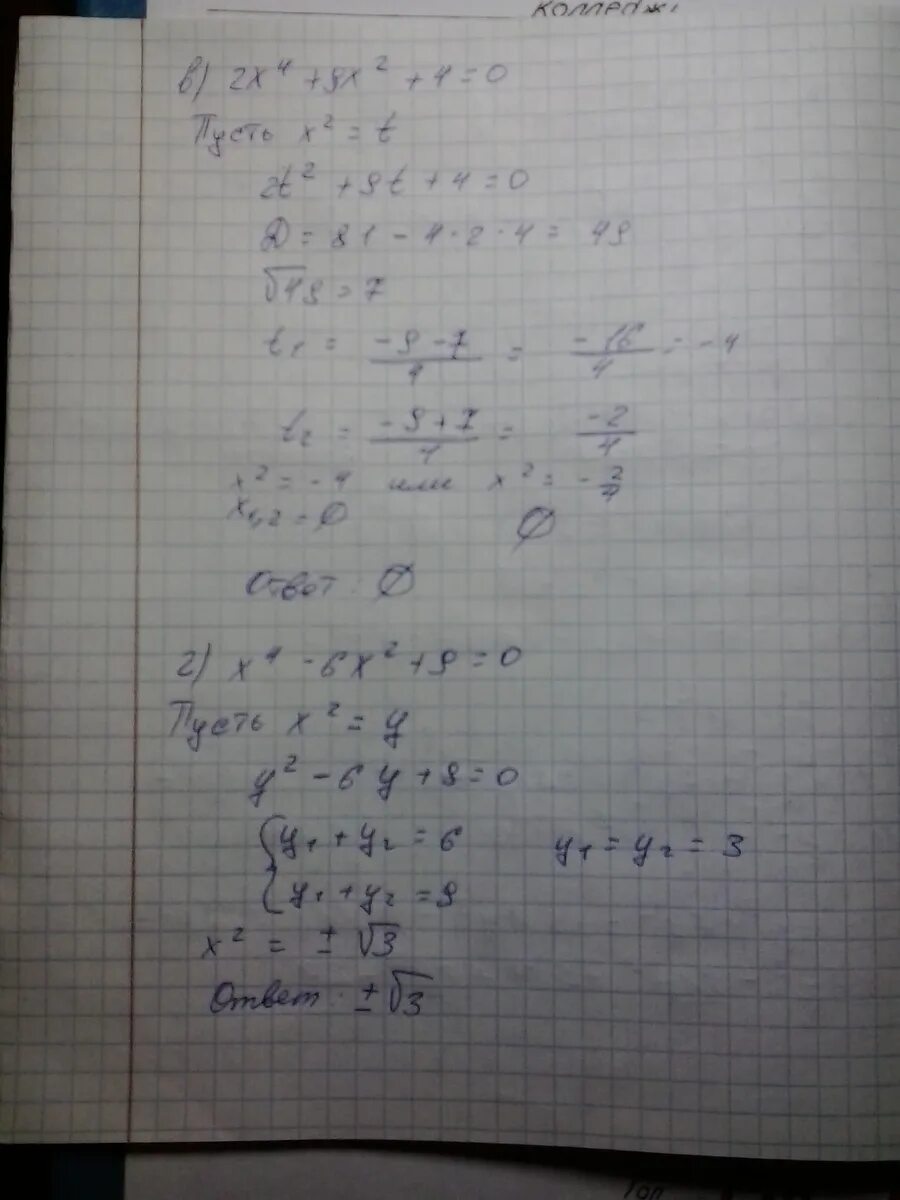 колледж
в) 2x⁴ + 9x² + 4 = 0
Пусть x² = t
2t² + 9t + 4 = 0
D = 81 - 4·2·4 = 49
√49 = 7
t₁ = (-9 - 7)/4 = -16/4 = -4
t₂ = (-9 + 7)/4 = -2/4
x² = -4 или x² = -2/4
x₁,₂ = ∅ ∅
Ответ: ∅
г) x⁴ - 6x² + 9 = 0
Пусть x² = y
y² - 6y + 9 = 0
{ y₁ + y₂ = 6 y₁ = y₂ = 3
{ y₁ + y₂ = 9
x² = ±√3
Ответ: ±√3